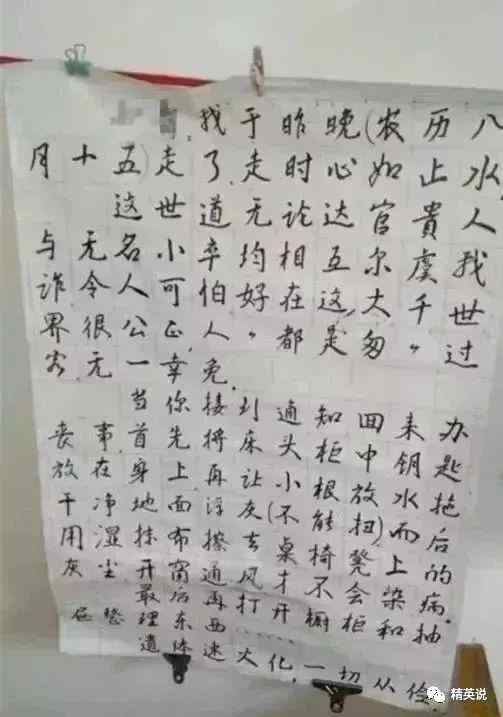 我于昨晚(农历八
月十五)走了.走时心如止水,
这世道无论达官贵人
与无名小卒均相互尔虞我
诈.令人可怕.好在这大千世
界很公正,人〃都是匆〃过
客,无一幸免.
当你接到通知回来办
丧事.首先将床头柜中钥匙
放在身上再让小根放水拖
干净地面浮灰(不能扭)而后
用湿抹布擦去桌椅凳上的
灰尘 开窗通风才不会染病.
最后再打开橱柜和抽
屉整理东西......
遗体速火化,一切从俭.
精英说